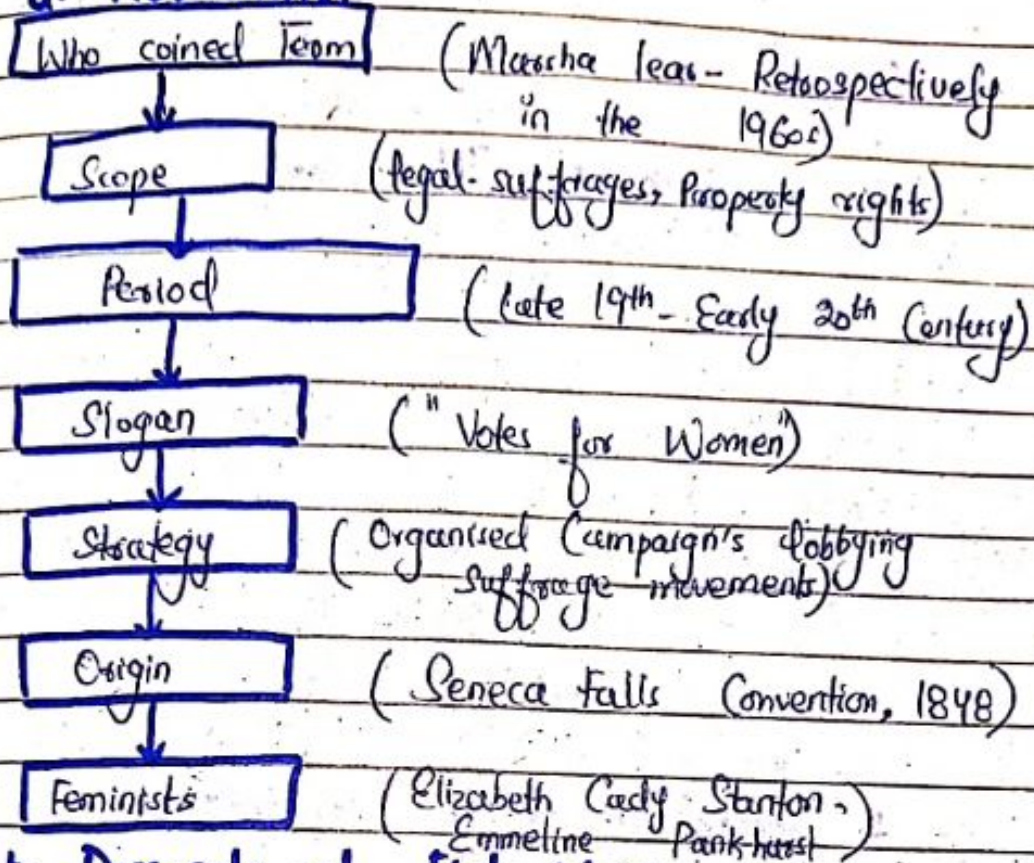 Who coined Term
(Marscha lear - Retrospectively
in the 1960s)
Scope
(legal - suffrages, Property rights)
Period
(late 19th - Early 20th Century)
Slogan
("Votes for Women")
Strategy
(Organised Campaign's lobbying
suffrage movements)
Origin
(Seneca Falls Convention, 1848)
Feminists
(Elizabeth Cady Stanton,
Emmeline Pankhurst)